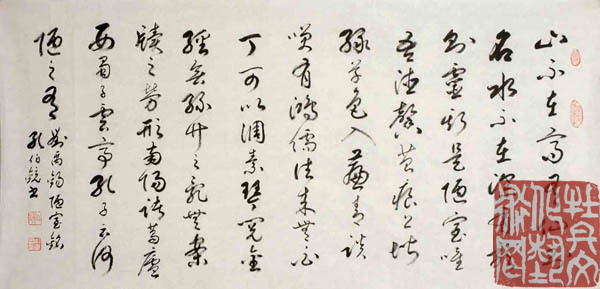 山不在高有仙則
名水不在深有龍
則靈斯是陋室唯
吾德馨苔痕上階
綠草色入簾青談
笑有鴻儒往來無白
丁可以調素琴閱金
經無絲竹之亂無案
牘之勞形南陽諸葛廬
西蜀子雲亭孔子云何
陋之有
劉禹錫陋室銘
孔伯書